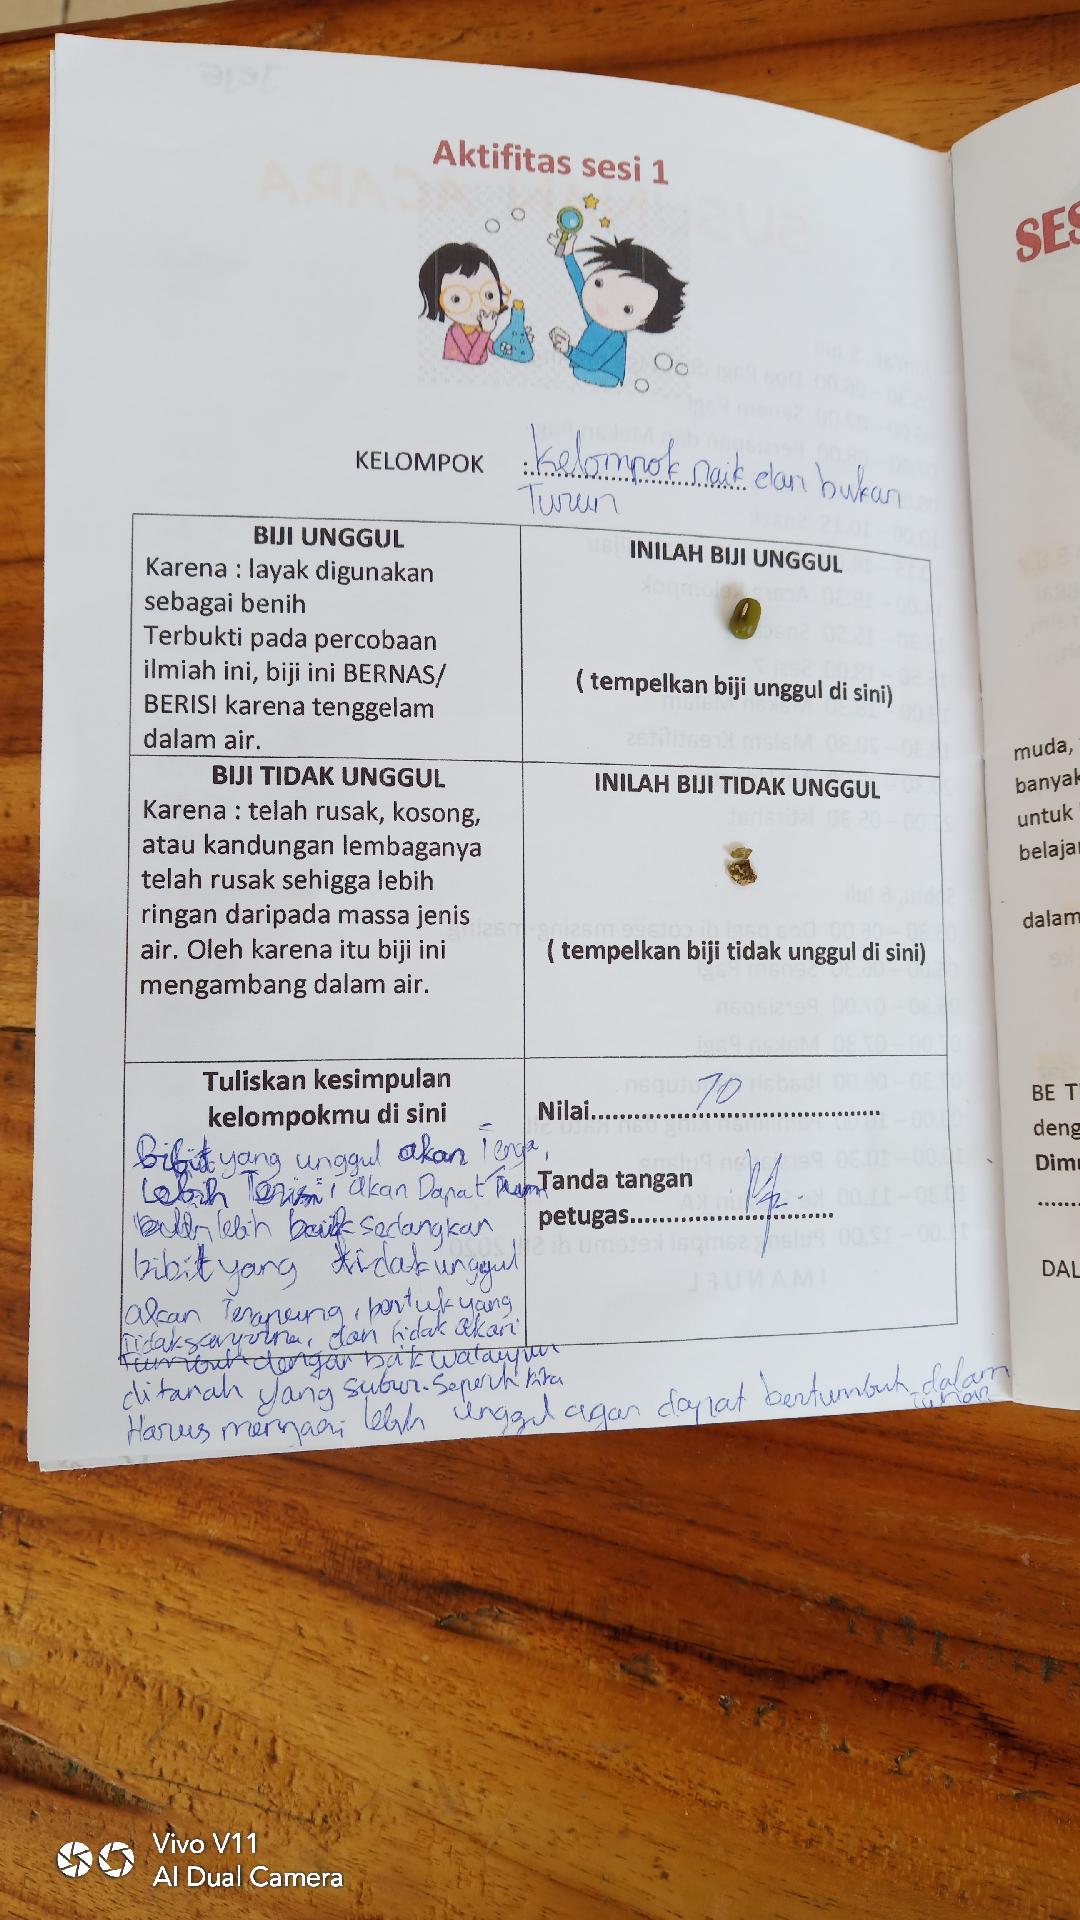 Aktifitas sesi 1
KELOMPOK : Kelompok naik dan bukan
Turun
BIJI UNGGUL
Karena : layak digunakan
sebagai benih
Terbukti pada percobaan
ilmiah ini, biji ini BERNAS/
BERISI karena tenggelam
dalam air.
INILAH BIJI UNGGUL
( tempelkan biji unggul di sini)
BIJI TIDAK UNGGUL
Karena : telah rusak, kosong,
atau kandungan lembaganya
telah rusak sehigga lebih
ringan daripada massa jenis
air. Oleh karena itu biji ini
mengambang dalam air.
INILAH BIJI TIDAK UNGGUL
( tempelkan biji tidak unggul di sini)
Tuliskan kesimpulan
kelompokmu di sini
Bibit yang unggul akan
Lebih Terisi, akan Dapat
lebih baik sedangkan
bibit yang tidak unggul
akan Terapung, bentuk yang
Tidak sempurna, dan tidak akan
Tumbuh dengan baik walaupun
ditanah yang subur. Seperti kita
Harus menjadi lebih unggul agar dapat bertumbuh dalam
Tuhan
Nilai.......70.......
Tanda tangan
petugas.......
SES
muda,
banyak
untuk
belaja
dalam
BE T
deng
Dim
DAL
Vivo V11
AI Dual Camera